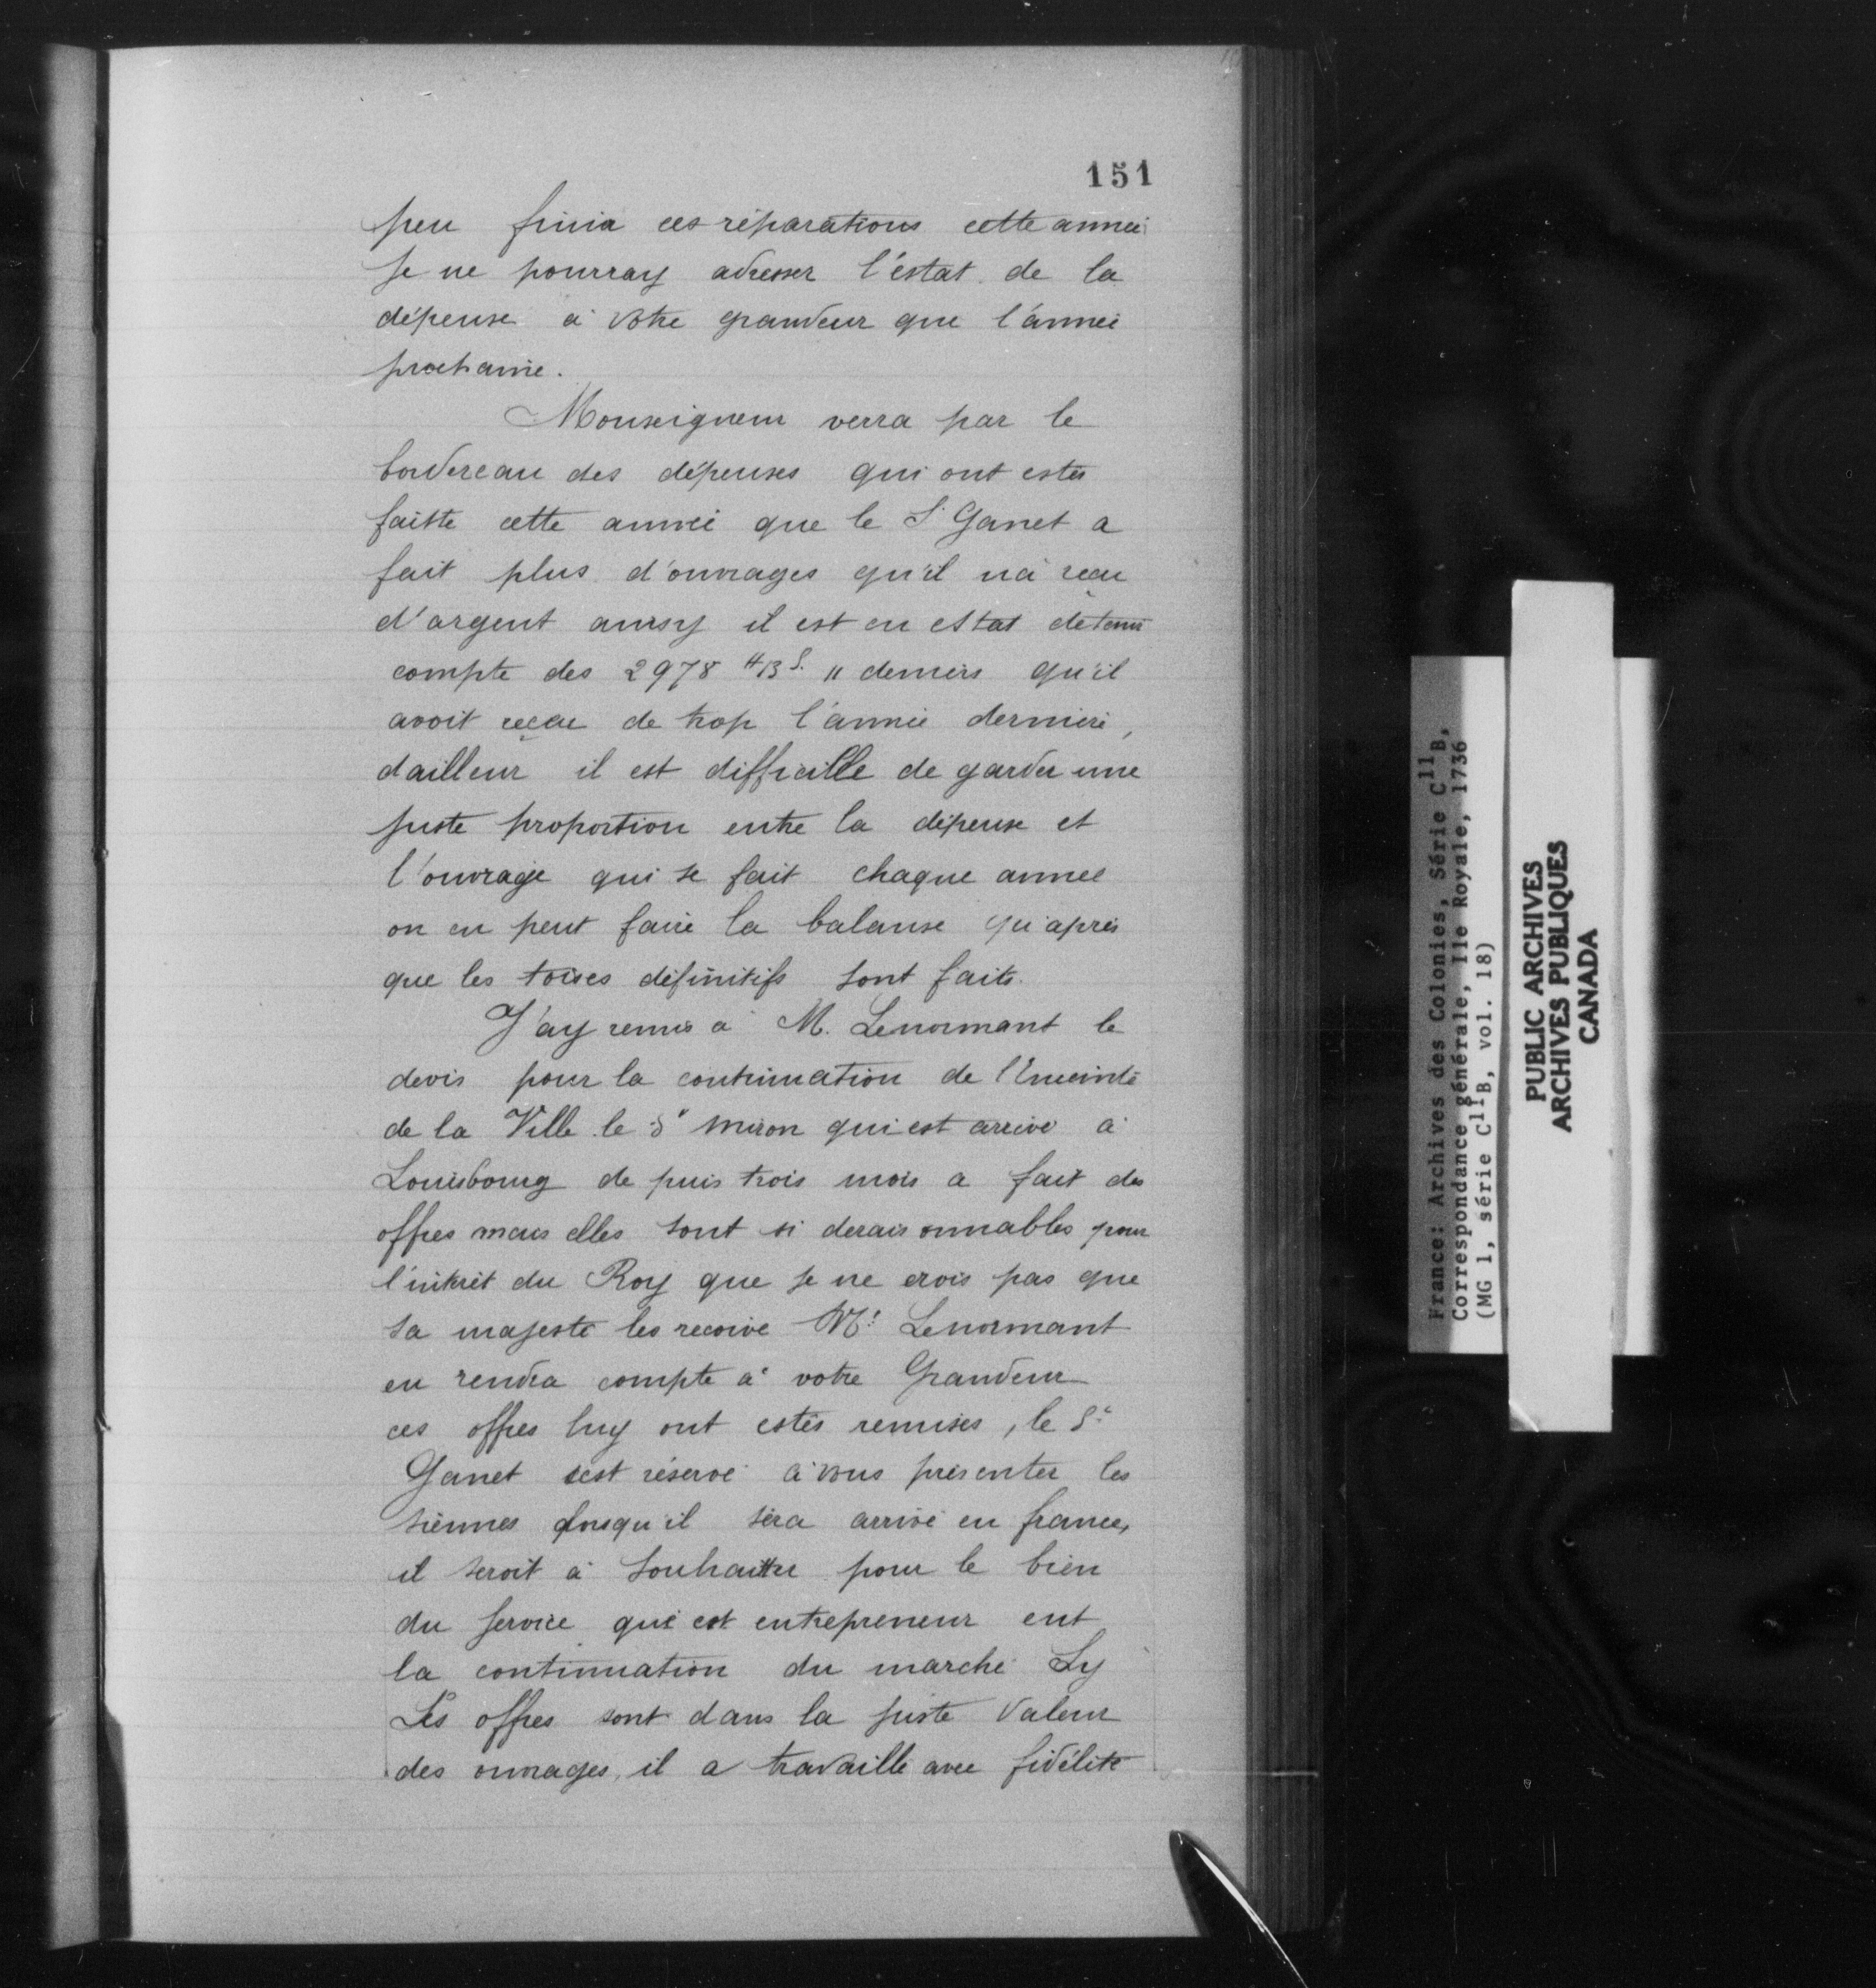 151
peu finir ces réparations cette année
je ne pourray adresser l'éstat de la
dépense à votre grandeur que l'année
prochaine.
Monseigneur verra par le
bordereau des dépenses qui ont estés
faitte cette année que le S. Ganet a
fait plus d'ouvrages qu'il n'a reçu
d'argent aussy il est en estat de tenir
compte des 2978 ₶ 13 S. 11 deniers qu'il
avoit reçeu de trop l'année derniére,
dailleur il est difficille de garder une
juste proportion entre la dépense et
l'ouvrage qui se fait chaque année
on en peut faire la balanse qu'aprés
que les toises définitifs sont faits.
J'ay remis à M. Lenormant le
devis pour la continuation de l'Enceinte
de la Ville le Sr Miron qui est arrivé à
Louisbourg de puis trois mois a fait des
offres mais elles sont si deraisonnables pour
l'intérêt du Roy que je ne crois pas que
sa majesté les recoive Mr Lenormant
en rendra compte à votre Grandeur
ces offres luy ont estés remises, le Sr
Ganet s'est réservé à vous présenter les
siennes lorsqu'il séra arrivé en france,
il seroit à souhaitter pour le bien
du service que cet entrepreneur eut
la continuation du marché Sy
Ses offres sont dans la juste valeur
des ouvrages, il a travaillé avec fidélité
France: Archives des Colonies, Série C11B,
Correspondance générale, Ile Royale, 1736
(MG 1, série C11B, vol. 18)
PUBLIC ARCHIVES
ARCHIVES PUBLIQUES
CANADA